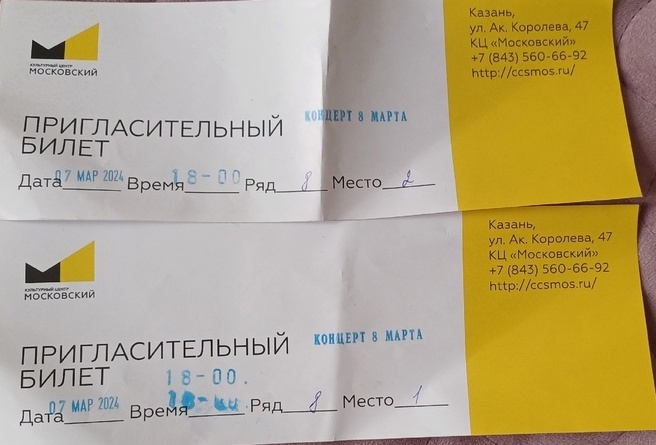 КУЛЬТУРНЫЙ ЦЕНТР
МОСКОВСКИЙ
Казань,
ул. Ак. Королева, 47
КЦ «Московский»
+7 (843) 560-66-92
http://ccsmos.ru/
КОНЦЕРТ 8 МАРТА
ПРИГЛАСИТЕЛЬНЫЙ
БИЛЕТ
Дата 07 МАР 2024 Время 18-00 Ряд 8 Место 2
КУЛЬТУРНЫЙ ЦЕНТР
МОСКОВСКИЙ
Казань,
ул. Ак. Королева, 47
КЦ «Московский»
+7 (843) 560-66-92
http://ccsmos.ru/
КОНЦЕРТ 8 МАРТА
ПРИГЛАСИТЕЛЬНЫЙ
БИЛЕТ
18-00.
Дата 07 МАР 2024 Время Ряд 8 Место 1